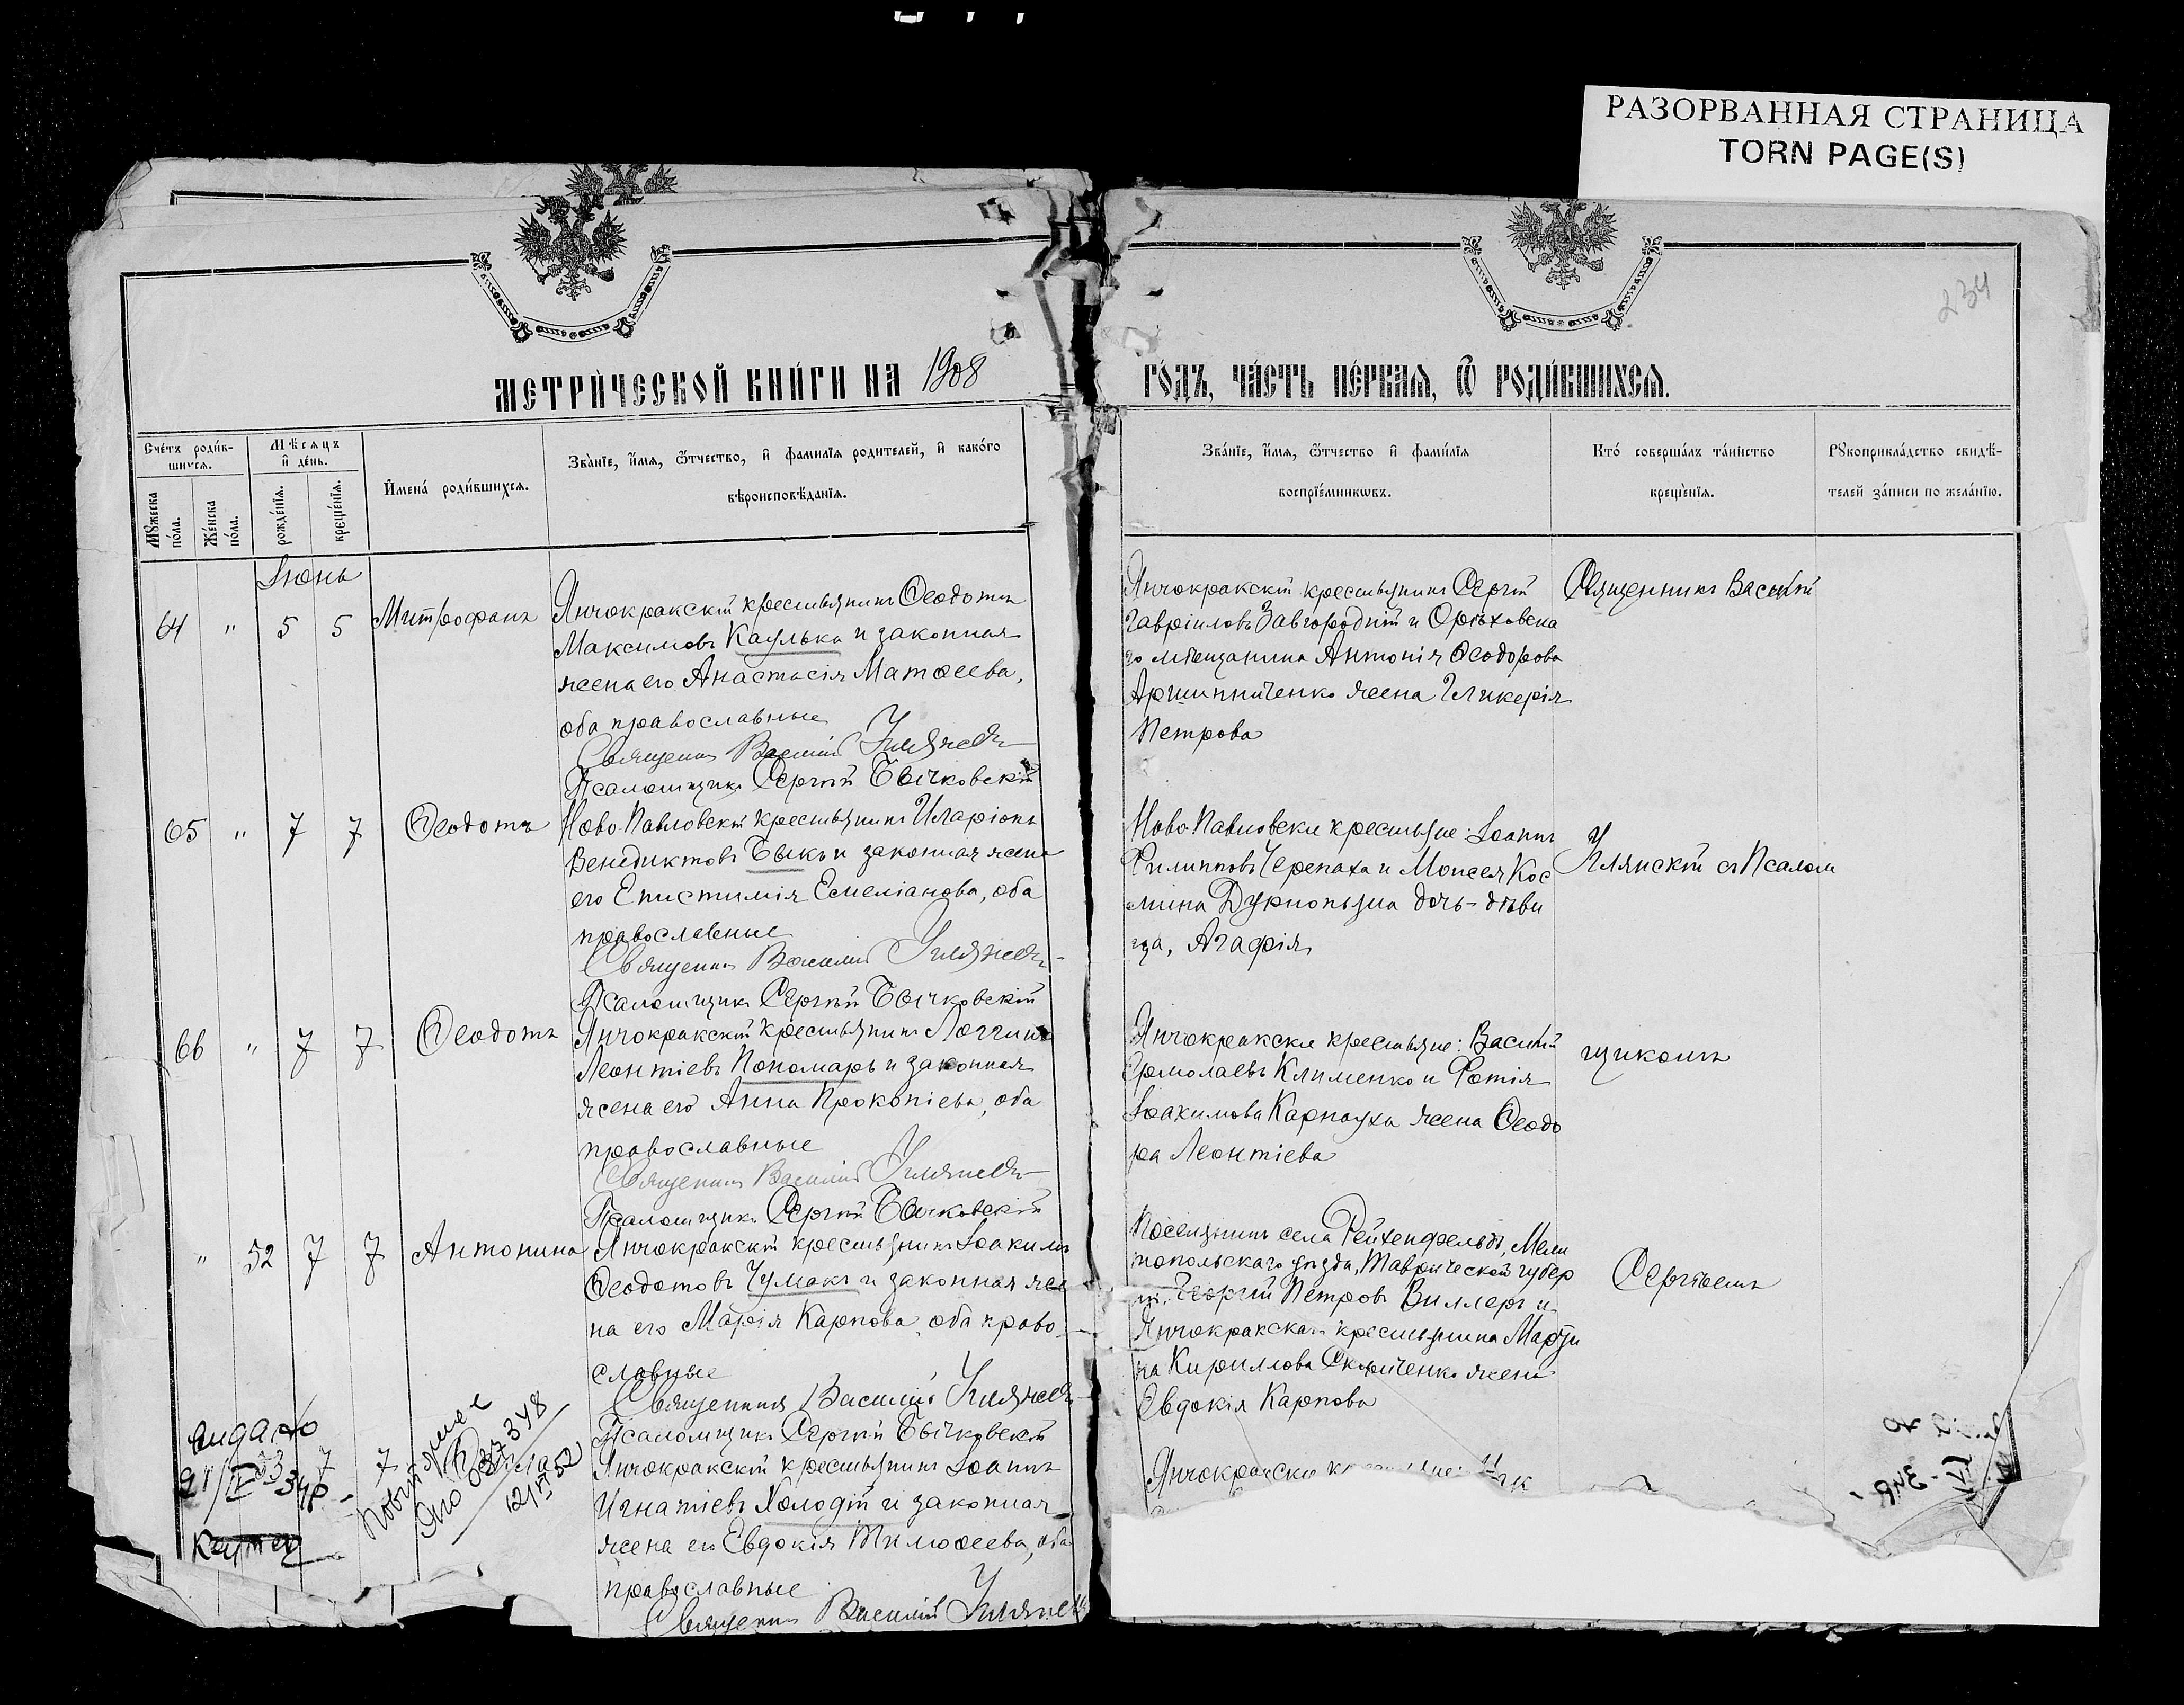 РАЗОРВАННАЯ СТРАНИЦА
TORN PAGE(S)
234
МЕТРИ́ЧЕСКОЙ КНИ́ГИ НА 1908
ГО́ДЪ, ЧА́СТЬ ПЕ́РВАѦ, Ѿ РОДИ́ВШИХСѦ.
Сче́тъ роди́в-
шихсѧ.
Мѣ́сѧцъ
и҆ де́нь.
Мꙋ́жеска
по́ла.
Же́нска
по́ла.
рожде́нїѧ.
креще́нїѧ.
И҆мена́ роди́вшихсѧ.
Зва́нїе, и҆́мѧ, ѻ҆́тчество, и҆ фами́лїѧ родителей, и҆ како́го
вѣроисповѣ́данїѧ.
Зва́нїе, и҆́мѧ, ѻ҆́тчество и҆ фами́лїѧ
воспрїе́мникѡвъ.
Кто́ соверша́лъ та́инство
креще́нїѧ.
Рꙋкоприкла́дство свидѣ́-
телей за́писи по жела́нїю.
Іюнь
64 " 5 5 Митрофанъ
Янчокракскій крестьянинъ Ѳеодотъ
Максимовъ Каулько и законная
жена его Анастасія Матѳеева,
оба православные
Священникъ Василій
Псаломщикъ Сергій Бычковскій
Янчокракскій крестьянинъ Сергій
Гавріиловъ Завгородній и Орѣховска
го мѣщанина Антонія Ѳеодорова
жена Гликерія
Петрова
Священникъ Василій
65 " 7 7 Ѳеодотъ
Ново-Павловскій крестьянинъ Иларіонъ
Венедиктовъ Быкъ и законная жена
его Епистимія Емеліанова, оба
православные
Священникъ Василій
Псаломщикъ Сергій Бычковскій
Ново-Павловскіе крестьяне: Іоаннъ
Филипповъ Черепаха и Моисея Кос
мина дочь-дѣви
ца, Агафія
съ Псалом
66 " 7 7 Ѳеодотъ
Янчокракскій крестьянинъ Логгинъ
Леонтіевъ Пономарь и законная
жена его Анна Прокопіева, оба
православные
Священникъ Василій
Псаломщикъ Сергій Бычковскій
Янчокракскіе крестьяне: Василій
Ермолаевъ Клименко и Фотія
Іоакимова Карнауха жена Ѳеодо
ра Леонтіева
щикомъ
" 52 7 7 Антонина
Янчокракскій крестьянинъ Іоакимъ
Ѳеодотовъ Чумакъ и законная же
на его Марія Карпова, оба право
славные
Священникъ Василій
Псаломщикъ Сергій Бычковскій
Поселянинъ села Рейхенфельдъ, Мели
топольскаго уѣзда, Таврической губер
ніи, Георгій Петровъ Виллеръ и
Янчокракскаго крестьянина Марти
на Кириллова жена
Евдокія Карпова
Сергіемъ
7 7
Янчокракскій крестьянинъ Іоаннъ
Игнатіевъ Холодій и законная
жена его Евдокія Тимоѳеева, оба
православные
Священникъ Василій
Янчокракскіе
видано
037348